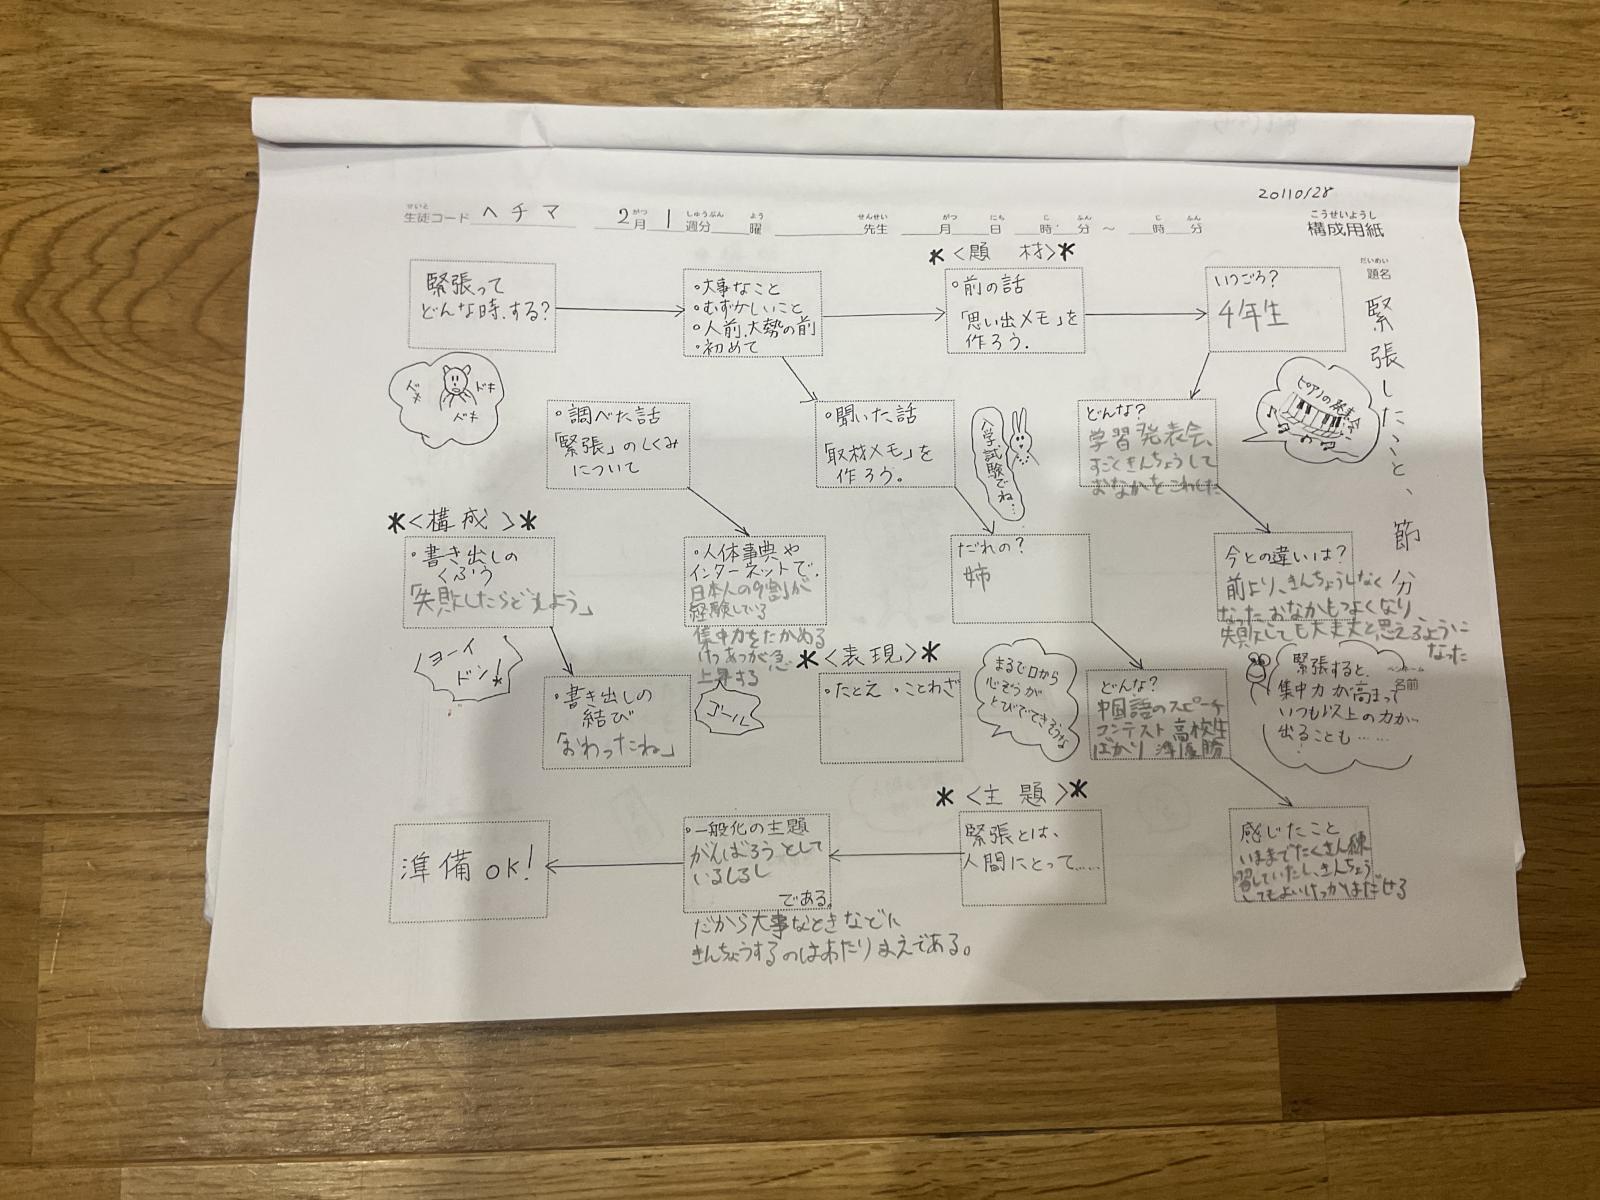 20110128
せいと がつ しゅうぶん よう せんせい がつ にち じ ふん じ ふん こうせいようし
生徒コード ヘチマ 2月 1週分 曜 先生 月 日 時 分 〜 時 分 構成用紙
だいめい
題名
緊張したこと、節分
*<題 材>*
緊張って
どんな時、する?
・大事なこと
・むずかしいこと
・人前、大勢の前
・初めて
・前の話
「思い出メモ」を
作ろう.
いつごろ?
4年生
ドキ
ドキ
ドキ
・調べた話
「緊張」のしくみ
について
・聞いた話
「取材メモ」を
作ろう。
入学試験でね…
どんな?
学習発表会、
すごくきんちょうして
おなかをこわした
ピアノの発表会
*<構成>*
・書き出しの
くふう
「失敗したらどうしよう」
・人体事典や
インターネットで.
日本人の9割が
経験している
集中力をたかめる
けつあつが急
上昇する
だれの?
姉
今との違いは?
前より、きんちょうしなく
なった おなかもつよくなり、
失敗しても大丈夫と思えるように
なった
ヨーイ
ドン
・書き出しの
結び
「おわったね」
ゴール
*<表現>*
・たとえ ・ことわざ
まるで口から
心ぞうが
とびでてきそうな
どんな?
中国語のスピーチ
コンテスト 高校生
ばかり 準優勝
緊張すると、
集中力が高まって
いつも以上の力が…
出ることも……
ペンネーム
名前
*<主題>*
準備OK!
・一般化の主題
がんばろうとして
いるしるし
である。
だから大事なときなどに
きんちょうするのはあたりまえである。
緊張とは、
人間にとって……
感じたこと
いままでたくさん練
習していたし、きんちょう
してもよいけっかはだせる